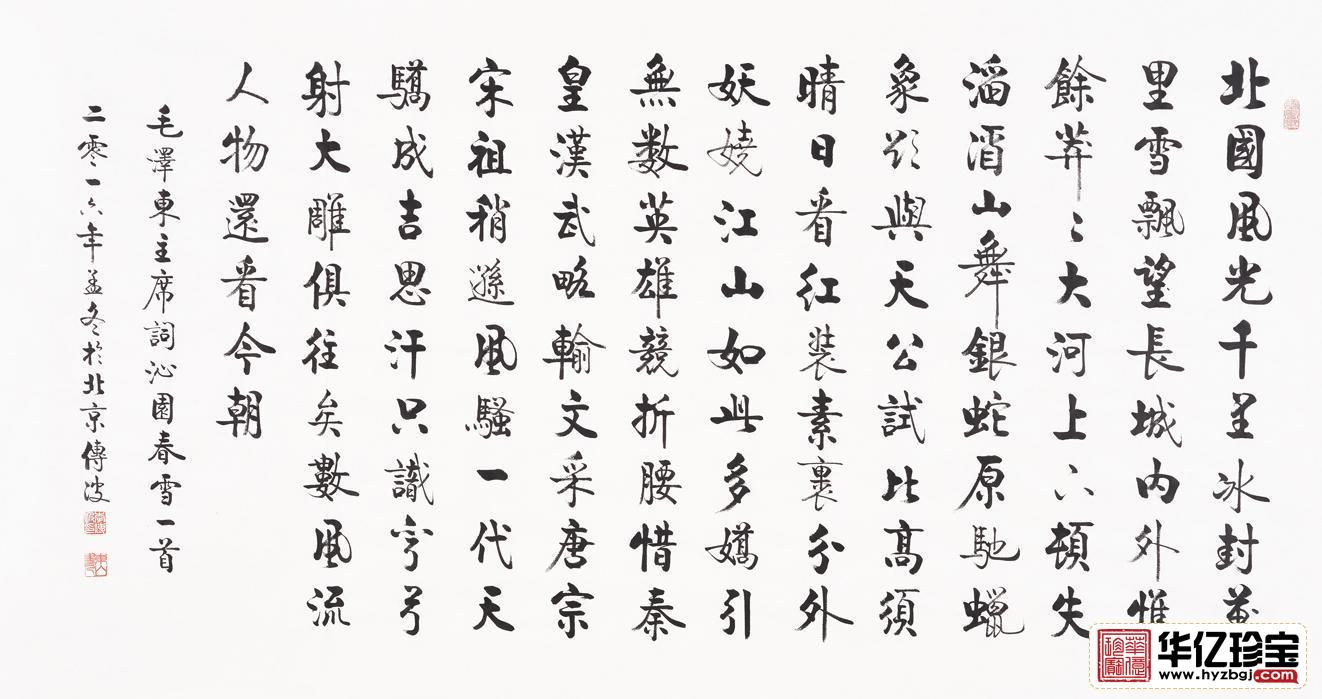 北國風光千里冰封萬
里雪飄望長城內外惟
餘莽〻大河上下頓失
滔滔山舞銀蛇原馳蠟
象欲與天公試比高須
晴日看紅裝素裹分外
妖嬈江山如此多嬌引
無数英雄競折腰惜秦
皇漢武略輸文采唐宗
宋祖稍遜風騷一代天
驕成吉思汗只識彎弓
射大雕俱往矣數風流
人物還看今朝
毛澤東主席詞沁園春雪一首
二零一六年孟冬於北京傳波
華億珍寶
华亿珍宝
www.hyzbgj.com